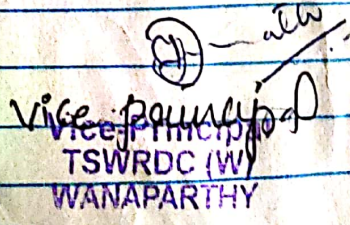 Vice principal
Vice-Principal
TSWRDC (W)
WANAPARTHY